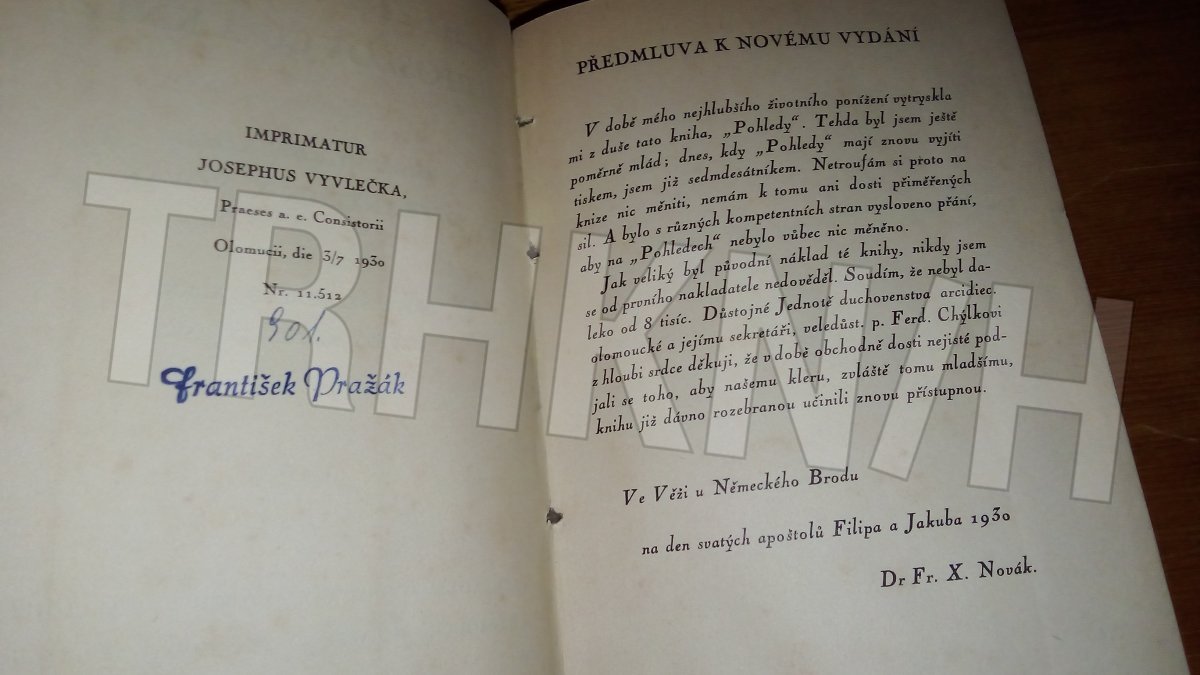 IMPRIMATUR
JOSEPHUS VYVLEČKA,
Praeses a. e. Consistorii
Olomucii, die 3/7 1930
Nr. 11.512
901.
František Pražák
PŘEDMLUVA K NOVÉMU VYDÁNÍ
V době mého nejhlubšího životního ponížení vytryskla
mi z duše tato kniha, „Pohledy“. Tehda byl jsem ještě
poměrně mlád; dnes, kdy „Pohledy“ mají znovu vyjíti
tiskem, jsem již sedmdesátníkem. Netroufám si proto na
knize nic měniti, nemám k tomu ani dosti přiměřených
sil. A bylo s různých kompetentních stran vysloveno přání,
aby na „Pohledech“ nebylo vůbec nic měněno.
Jak veliký byl původní náklad té knihy, nikdy jsem
se od prvního nakladatele nedověděl. Soudím, že nebyl da-
leko od 8 tisíc. Důstojné Jednotě duchovenstva arcidiec.
olomoucké a jejímu sekretáři, veledůst. p. Ferd. Chýlkovi
z hloubi srdce děkuji, že v době obchodně dosti nejisté pod-
jali se toho, aby našemu kleru, zvláště tomu mladšímu,
knihu již dávno rozebranou učinili znovu přístupnou.
Ve Věži u Německého Brodu
na den svatých apoštolů Filipa a Jakuba 1930
Dr Fr. X. Novák.
TRHKNIH